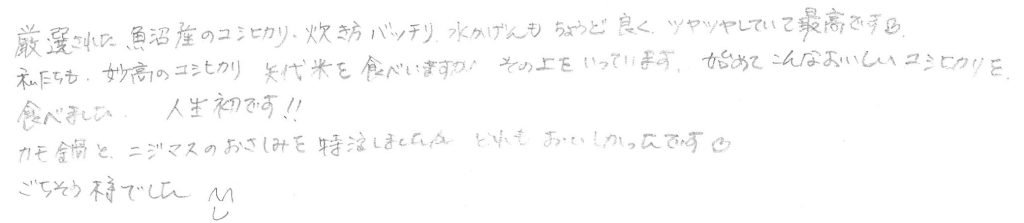 厳選された魚沼産のコシヒカリ、炊き方バッチリ、水かげんもちょうど良く、ツヤツヤしていて最高です。
私たちも、妙高のコシヒカリ 矢代米を食べいますが、その上をいっています。始めてこんなおいしいコシヒカリを、
食べました。 人生初です!!
カモ鍋と、ニジマスのおさしみを特注しましたが どれもおいしかったです
ごちそう様でした